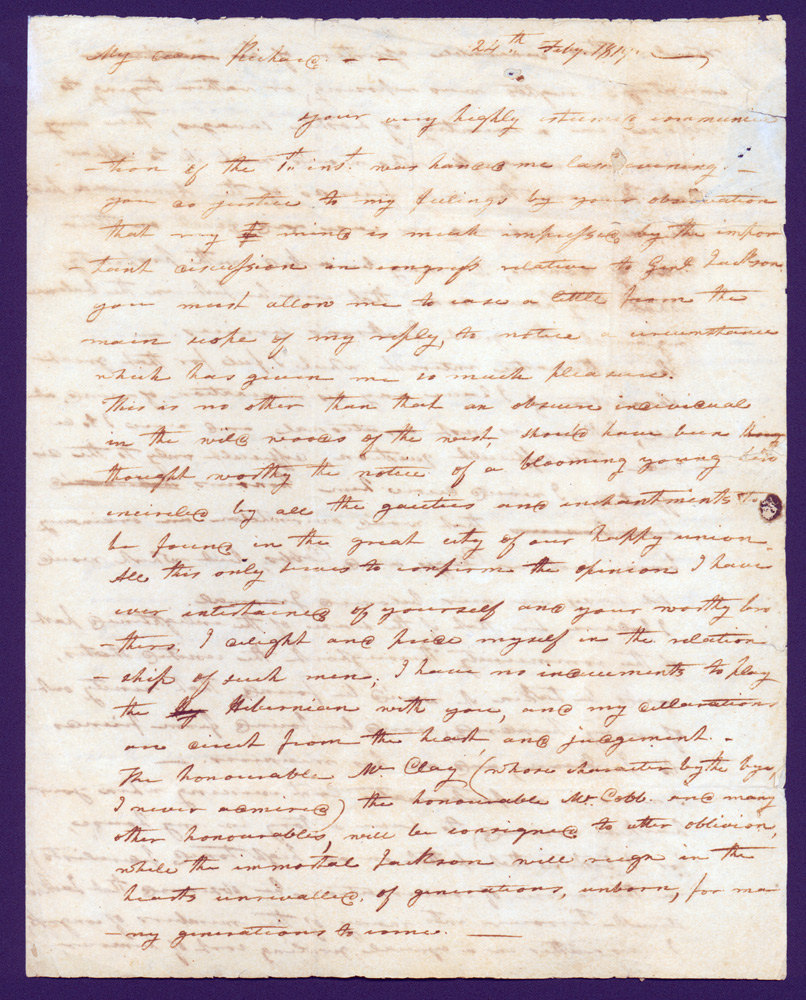 My dear Richard - - 24th Feby. 1819.
your very highly esteemed communica
-tion of the 1st inst. was handed me last evening. -
you do justice to my feelings by your observation
that my mind is much impressed by the impor
-tant discussion in congress relative to Genl. Jackson.
you must allow me to ease a little from the
main scope of my reply, to notice a circumstance
which has given me so much pleasure.
This is no other than that an obscure individual
in the wild woods of the west, should have been
thought worthy the notice of a blooming young
encircled by all the gaieties and enchantments to
be found in the great city of our happy union.
All this only serves to confirm the opinion I have
ever entertained of yourself and your worthy bro
-thers. I delight and pride myself in the relation
-ship of such men; I have no inducements to play
the Hibernian with you, and my declarations
are direct from the heart and judgement. -
The honourable Mr. Clay (whose character by the bye,
I never admired) the honourable Mr. Cobb. and many
other honourables, will be consigned to utter oblivion,
while the immortal Jackson will reign in the
hearts unrivalled, of generations, unborn, for ma
-ny generations to come. —